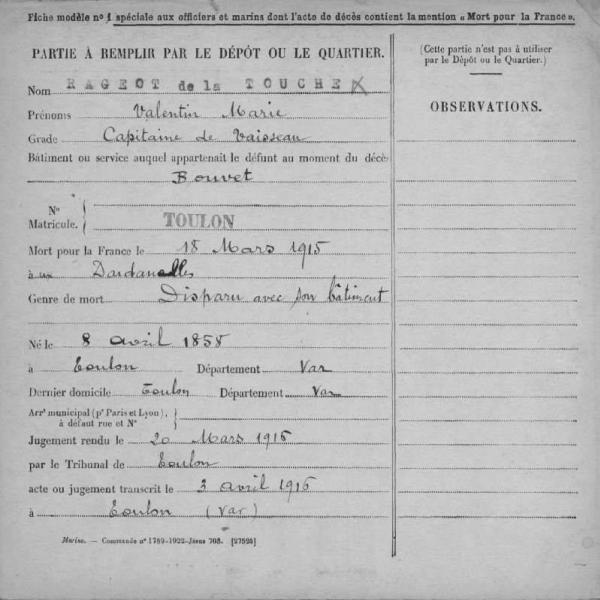 Fiche modèle nº 1 spéciale aux officiers et marins dont l'acte de décès contient la mention « Mort pour la France ».
PARTIE À REMPLIR PAR LE DÉPÔT OU LE QUARTIER.
Nom RAGEOT de la TOUCHE
Prénoms Valentin Marie
Grade Capitaine de Vaisseau
Bâtiment ou service auquel appartenait le défunt au moment du décès
Bouvet
Nº
Matricule. TOULON
Mort pour la France le 18 Mars 1915
à ux Dardanelles
Genre de mort Disparu avec son bâtiment
Né le 8 avril 1858
à Toulon Département Var
Dernier domicile Toulon Département Var
Arrt municipal (pr Paris et Lyon),
à défaut rue et Nº
Jugement rendu le 20 Mars 1916
par le Tribunal de Toulon
acte ou jugement transcrit le 3 avril 1916
à Toulon (Var)
Marine. — Commande nº 1789-1922-Jaens 708. [27525]
(Cette partie n'est pas à utiliser
par le Dépôt ou le Quartier.)
OBSERVATIONS.